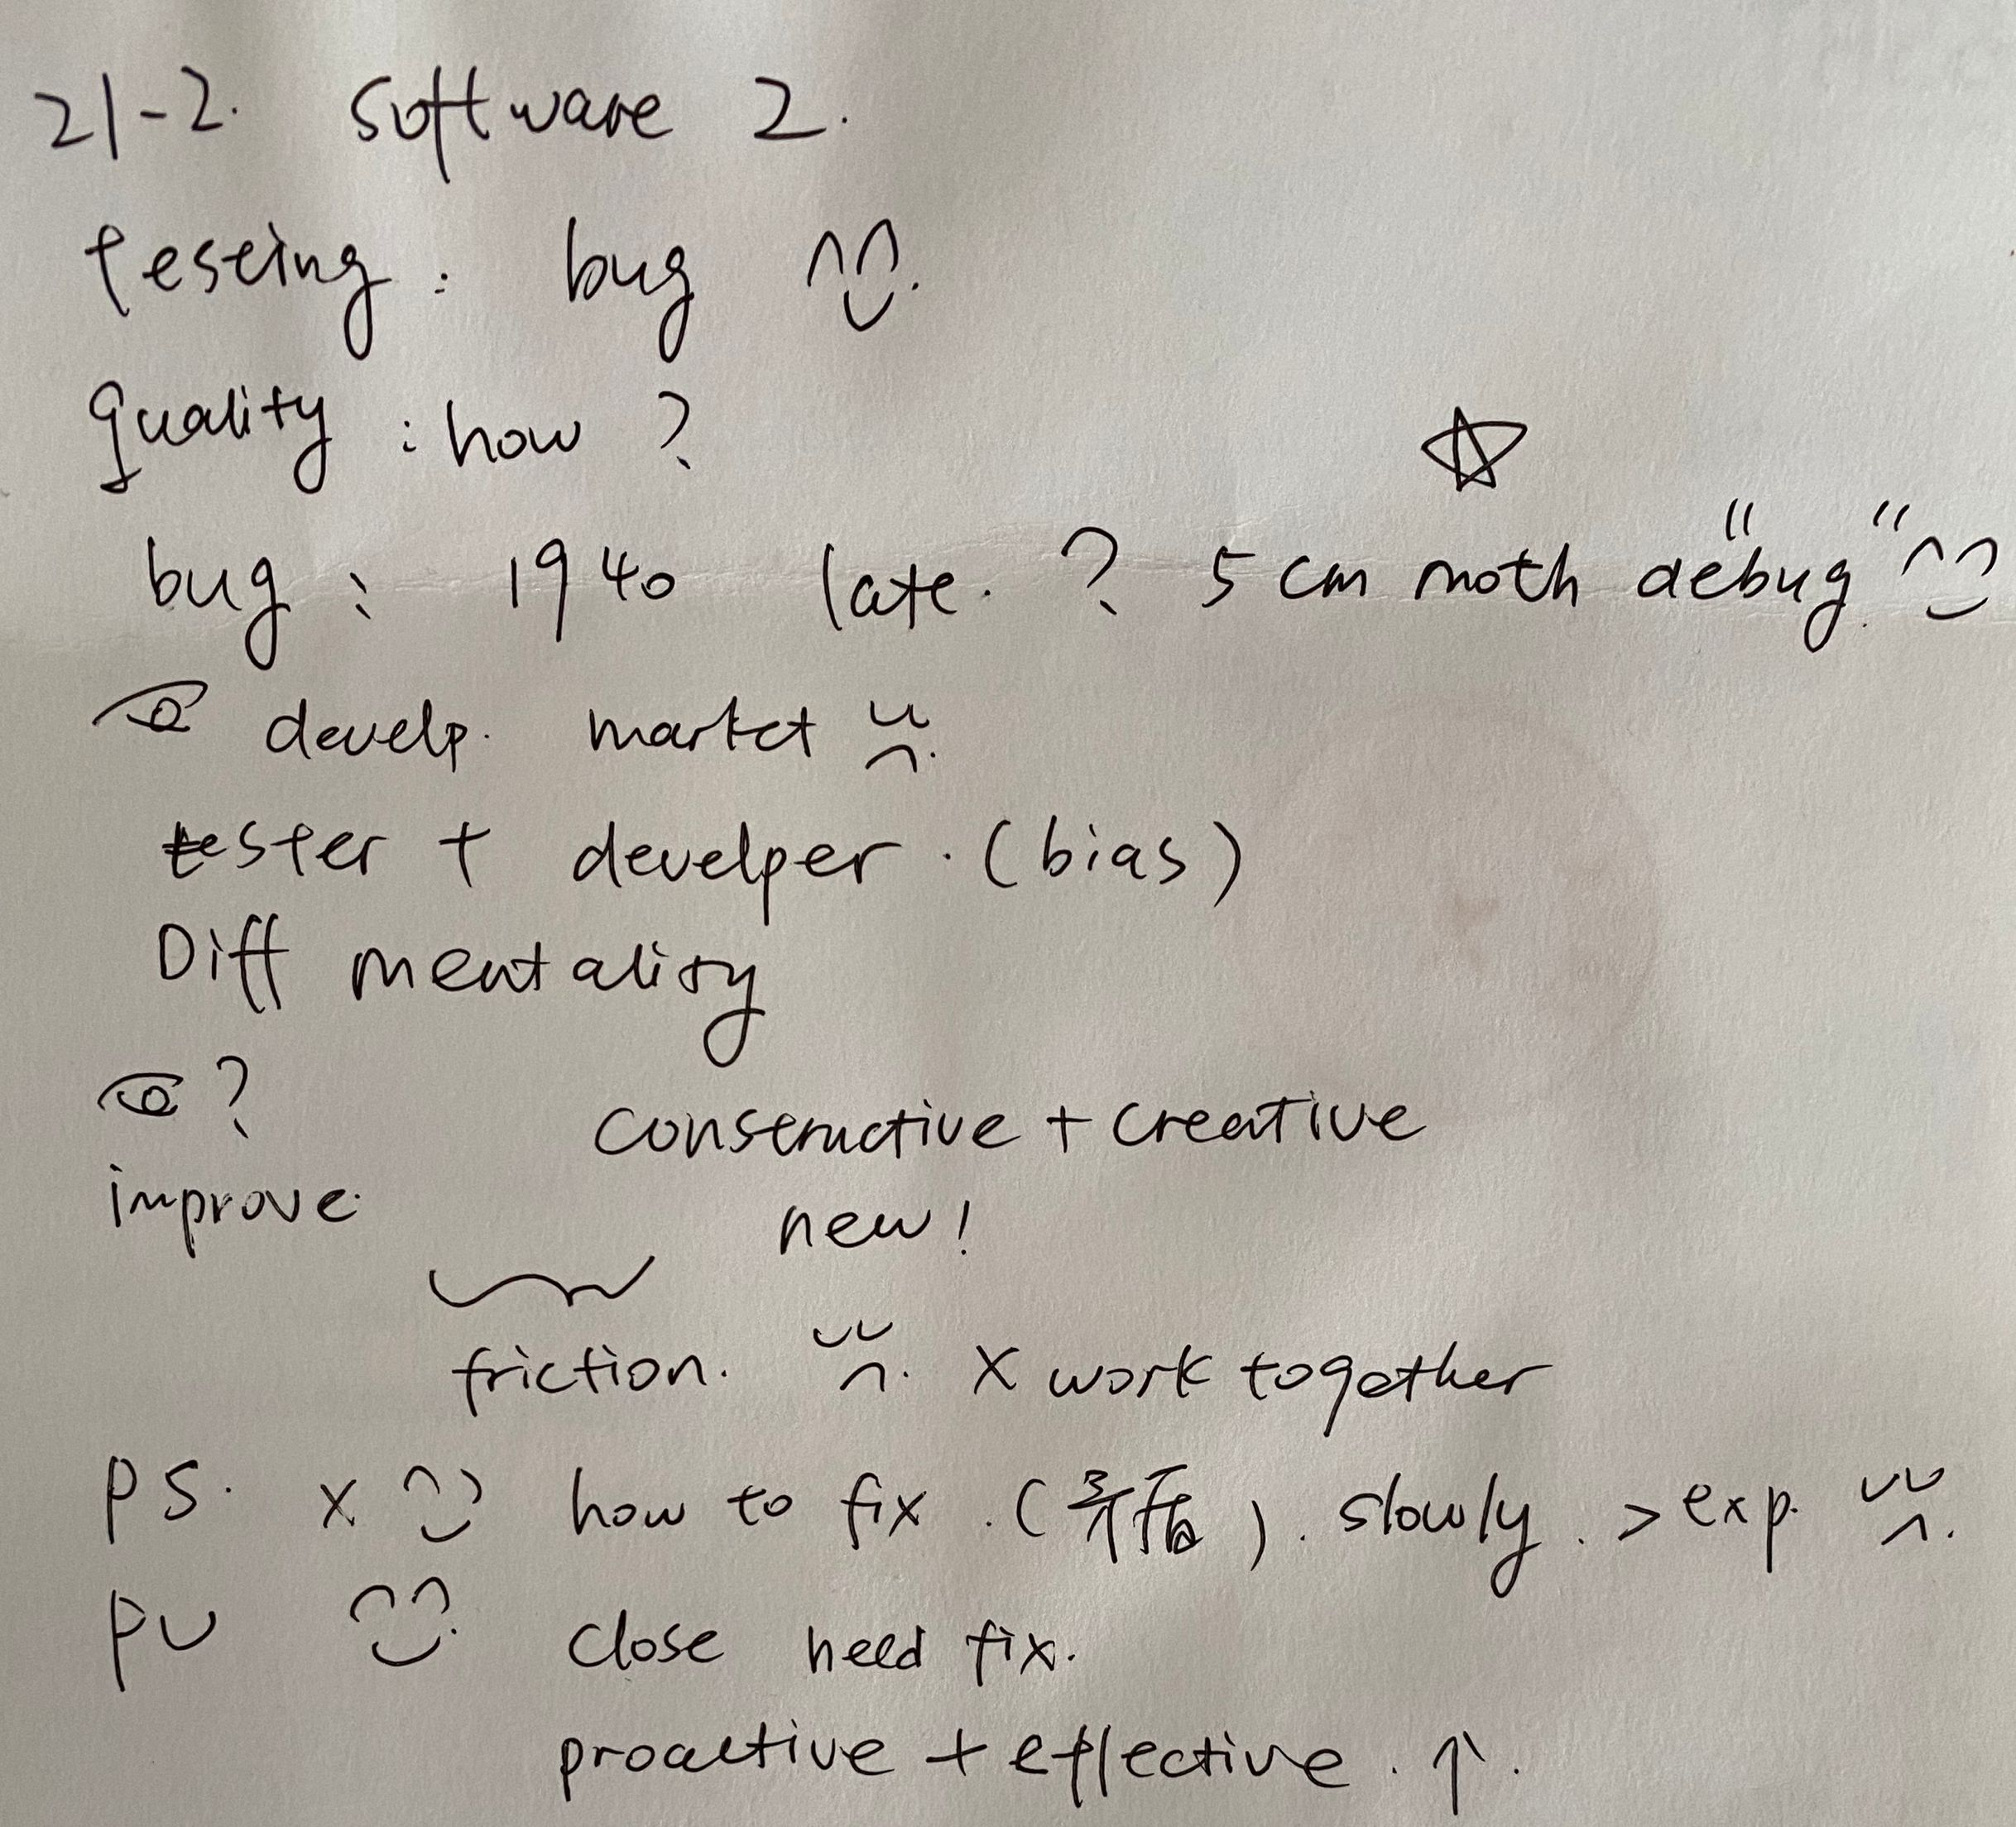 21-2. software 2.
testing : bug
quality : how ?
bug : 1940 late. ? 5 cm moth de"bug"
develp. market
tester + develper. (bias)
Diff mentality
?
constructive + creative
improve.
new!
friction. x work together
PS. x how to fix. ( ). slowly. > exp.
PU close need fix.
proactive + effective. ↑.